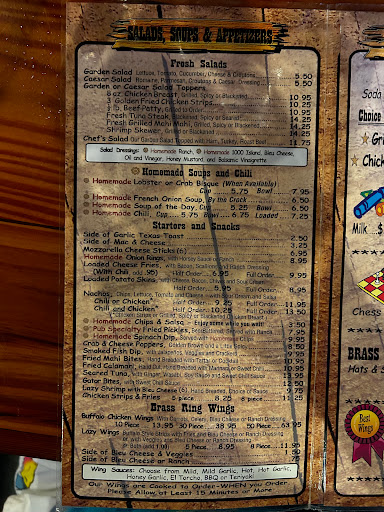 SALADS, SOUPS & APPETIZERS
Fresh Salads
Garden Salad Lettuce, Tomato, Cucumber, Cheese & Croutons 5.50
Caesar Salad Romaine, Parmesan, Croutons & Caesar Dressing 5.50
Garden or Caesar Salad Toppers
6 oz. Chicken Breast, Grilled, Spicy or Blackened 10.95
3 Golden Fried Chicken Strips 10.25
½ lb. Beef Patty, Grilled to Order 10.95
Fresh Tuna Steak, Spicy or Seared 14.25
Fresh Grilled Mahi Mahi, Grilled, Spicy or Blackened 14.25
Shrimp Skewer, Grilled or Blackened 14.25
Chef's Salad Our Garden Salad Topped with Ham, Turkey, Roast Beef 11.75
Salad Dressings: Homemade Ranch, Homemade 1000 Island, Bleu Cheese,
Oil and Vinegar, Honey Mustard, and Balsamic Vinaigrette
Homemade Soups and Chili
Homemade Lobster or Crab Bisque (When Available)
Cup 5.75 Bowl 7.95
Homemade French Onion Soup, By the Crock 6.50
Homemade Soup of the Day, Cup 5.25 Bowl 6.50
Homemade Chili, Cup 5.75 Bowl 6.75 Loaded 7.25
Starters and Snacks
Side of Garlic Texas Toast 2.50
Side of Mac & Cheese 3.25
Mozzarella Cheese Sticks (6) 6.95
Homemade Onion Rings, with Honey Sauce or Ranch 8.95
Loaded Cheese Fries, with Bacon, Scallions and Ranch Dressing
(With Chili add .95) Half Order 6.95 Full Order 9.95
Loaded Potato Skins, Cheese, Bacon, Chives and Sour Cream
Half Order 5.95 Full Order 8.95
Nachos, Chips, Lettuce, Tomato and Cheese with Sour Cream and Salsa
Chili or Chicken* Half Order 9.25 Full Order 11.95
Chili and Chicken* Half Order 10.25 Full Order 13.50
Homemade Chips & Salsa - Enjoy some while you wait! 3.50
Pub Specialty Fried Pickles, Breaded and Fried with Ranch 7.95
Homemade Spinach Dip, Served with Homemade Chips 9.95
Crab & Cheese Poppers, Golden Brown and a Little Spicy 8.50
Smoked Fish Dip, with Jalapenos, Veggies and Crackers 9.95
Fried Mahi Bites, Hand Breaded with Tartar or Cocktail 10.95
Fried Calamari, Hand Cut, Hand Breaded with Marinara or Sweet Chili 10.95
Seared Tuna, with Ginger, Wasabi, Soy Sauce and Sweet Chili Sauce 13.95
Gator Bites, with Sweet Chili Sauce 12.50
Lazy Shrimp with Bleu Cheese (6) Hand Breaded, Choice of Sauce 9.75
Chicken Strips & Fries 6 piece 8.25 11.25
Brass Ring Wings
Buffalo Chicken Wings With Celery, Bleu Cheese or Ranch Dressing
10 Piece 13.95 30 Piece 38.95 50 Piece 63.95
Lazy Wings
8 Piece 11.95
Side of Bleu Cheese & Veggies 1.50
Side of Bleu Cheese or Ranch .75
Wing Sauces: Choose from Mild, Mild Garlic, Hot, Hot Garlic,
Honey Garlic, El Torcho, BBQ or Teriyaki.
Our Wings are Cooked to Order-WHEN you Order
Please Allow at Least 15 Minutes or More
Soda
Choice
Gr
Ki
Milk
Chees
BRASS
Hats & S
Best
Wings